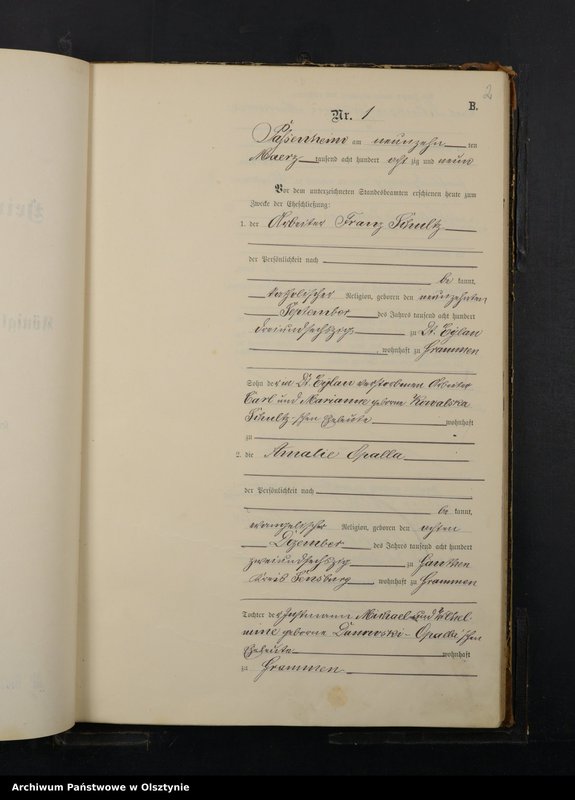 2
B.
Nr. 1
Passenheim am neunzehn ten
Maerz tausend acht hundert acht zig und neun
Vor dem unterzeichneten Standesbeamten erschienen heute zum
Zwecke der Eheschließung:
1. der Arbeiter Franz Schultz
der Persönlichkeit nach
be kannt,
katholischer Religion, geboren den neunzehnten
September des Jahres tausend acht hundert
dreiundsechszig zu Dt. Eylau
, wohnhaft zu Grammen
Sohn der in Dt. Eylau verstorbenen Arbeiter
Carl und Marianne geborne Kowalska
Schultz'schen Eheleute wohnhaft
zu
2. die Amalie Opalla
der Persönlichkeit nach
be kannt,
evangelischer Religion, geboren den achten
Dezember des Jahres tausend acht hundert
zweiundsechszig zu
Kreis Sensburg wohnhaft zu Grammen
Tochter der Michael und Wilhel
mine geborne Opalla'schen
Eheleute wohnhaft
zu Grammen
Archiwum Państwowe w Olsztynie